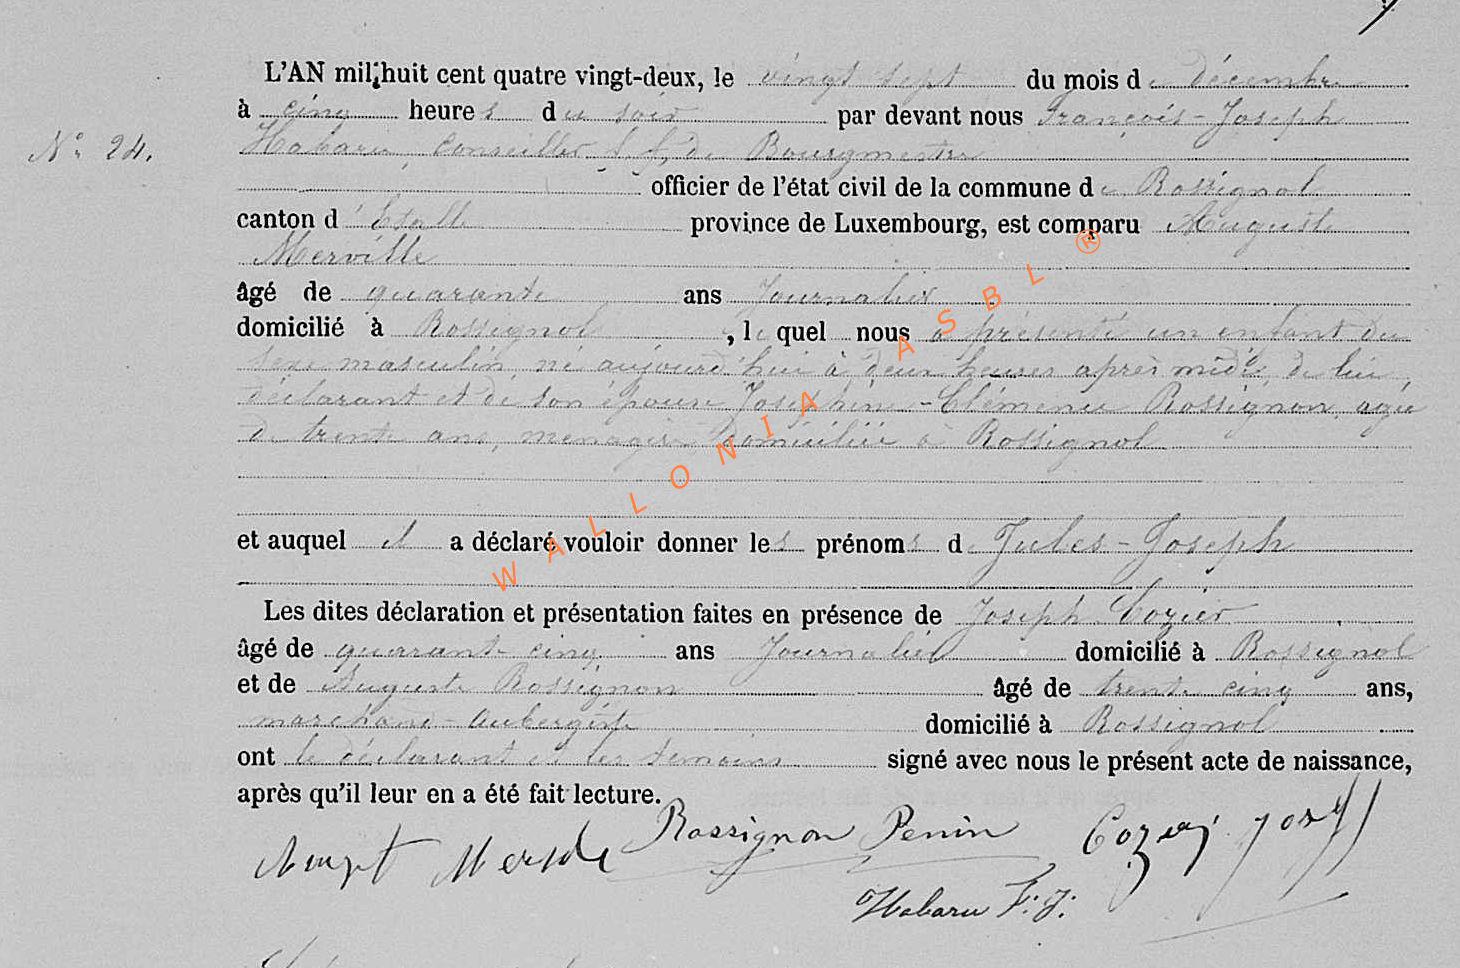 L'AN mil huit cent quatre vingt-deux, le vingt sept du mois de décembre
à cinq heures du soir par devant nous François-Joseph
N° 24. Habaru, Conseiller f.f. de Bourgmestre
officier de l'état civil de la commune de Rossignol
canton d'Etalle province de Luxembourg, est comparu Auguste
Merville
âgé de quarante ans Journalier
domicilié à Rossignol, lequel nous a présenté un enfant du
sexe masculin, né aujourd'hui à deux heures après midi, de lui,
déclarant et de son épouse Joséphine-Clémence Rossignon, agée
de trente ans, menagère domiciliée à Rossignol
et auquel il a déclaré vouloir donner les prénoms de Jules-Joseph
Les dites déclaration et présentation faites en présence de Joseph Cozier
âgé de quarante cinq ans Journalier domicilié à Rossignol
et de Auguste Rossignon âgé de trente cinq ans,
marchand-Aubergiste domicilié à Rossignol
ont le déclarant et les témoins signé avec nous le présent acte de naissance,
après qu'il leur en a été fait lecture.
Rossignon Penin
Habaru F.J.
WALLONIA ASBL ®